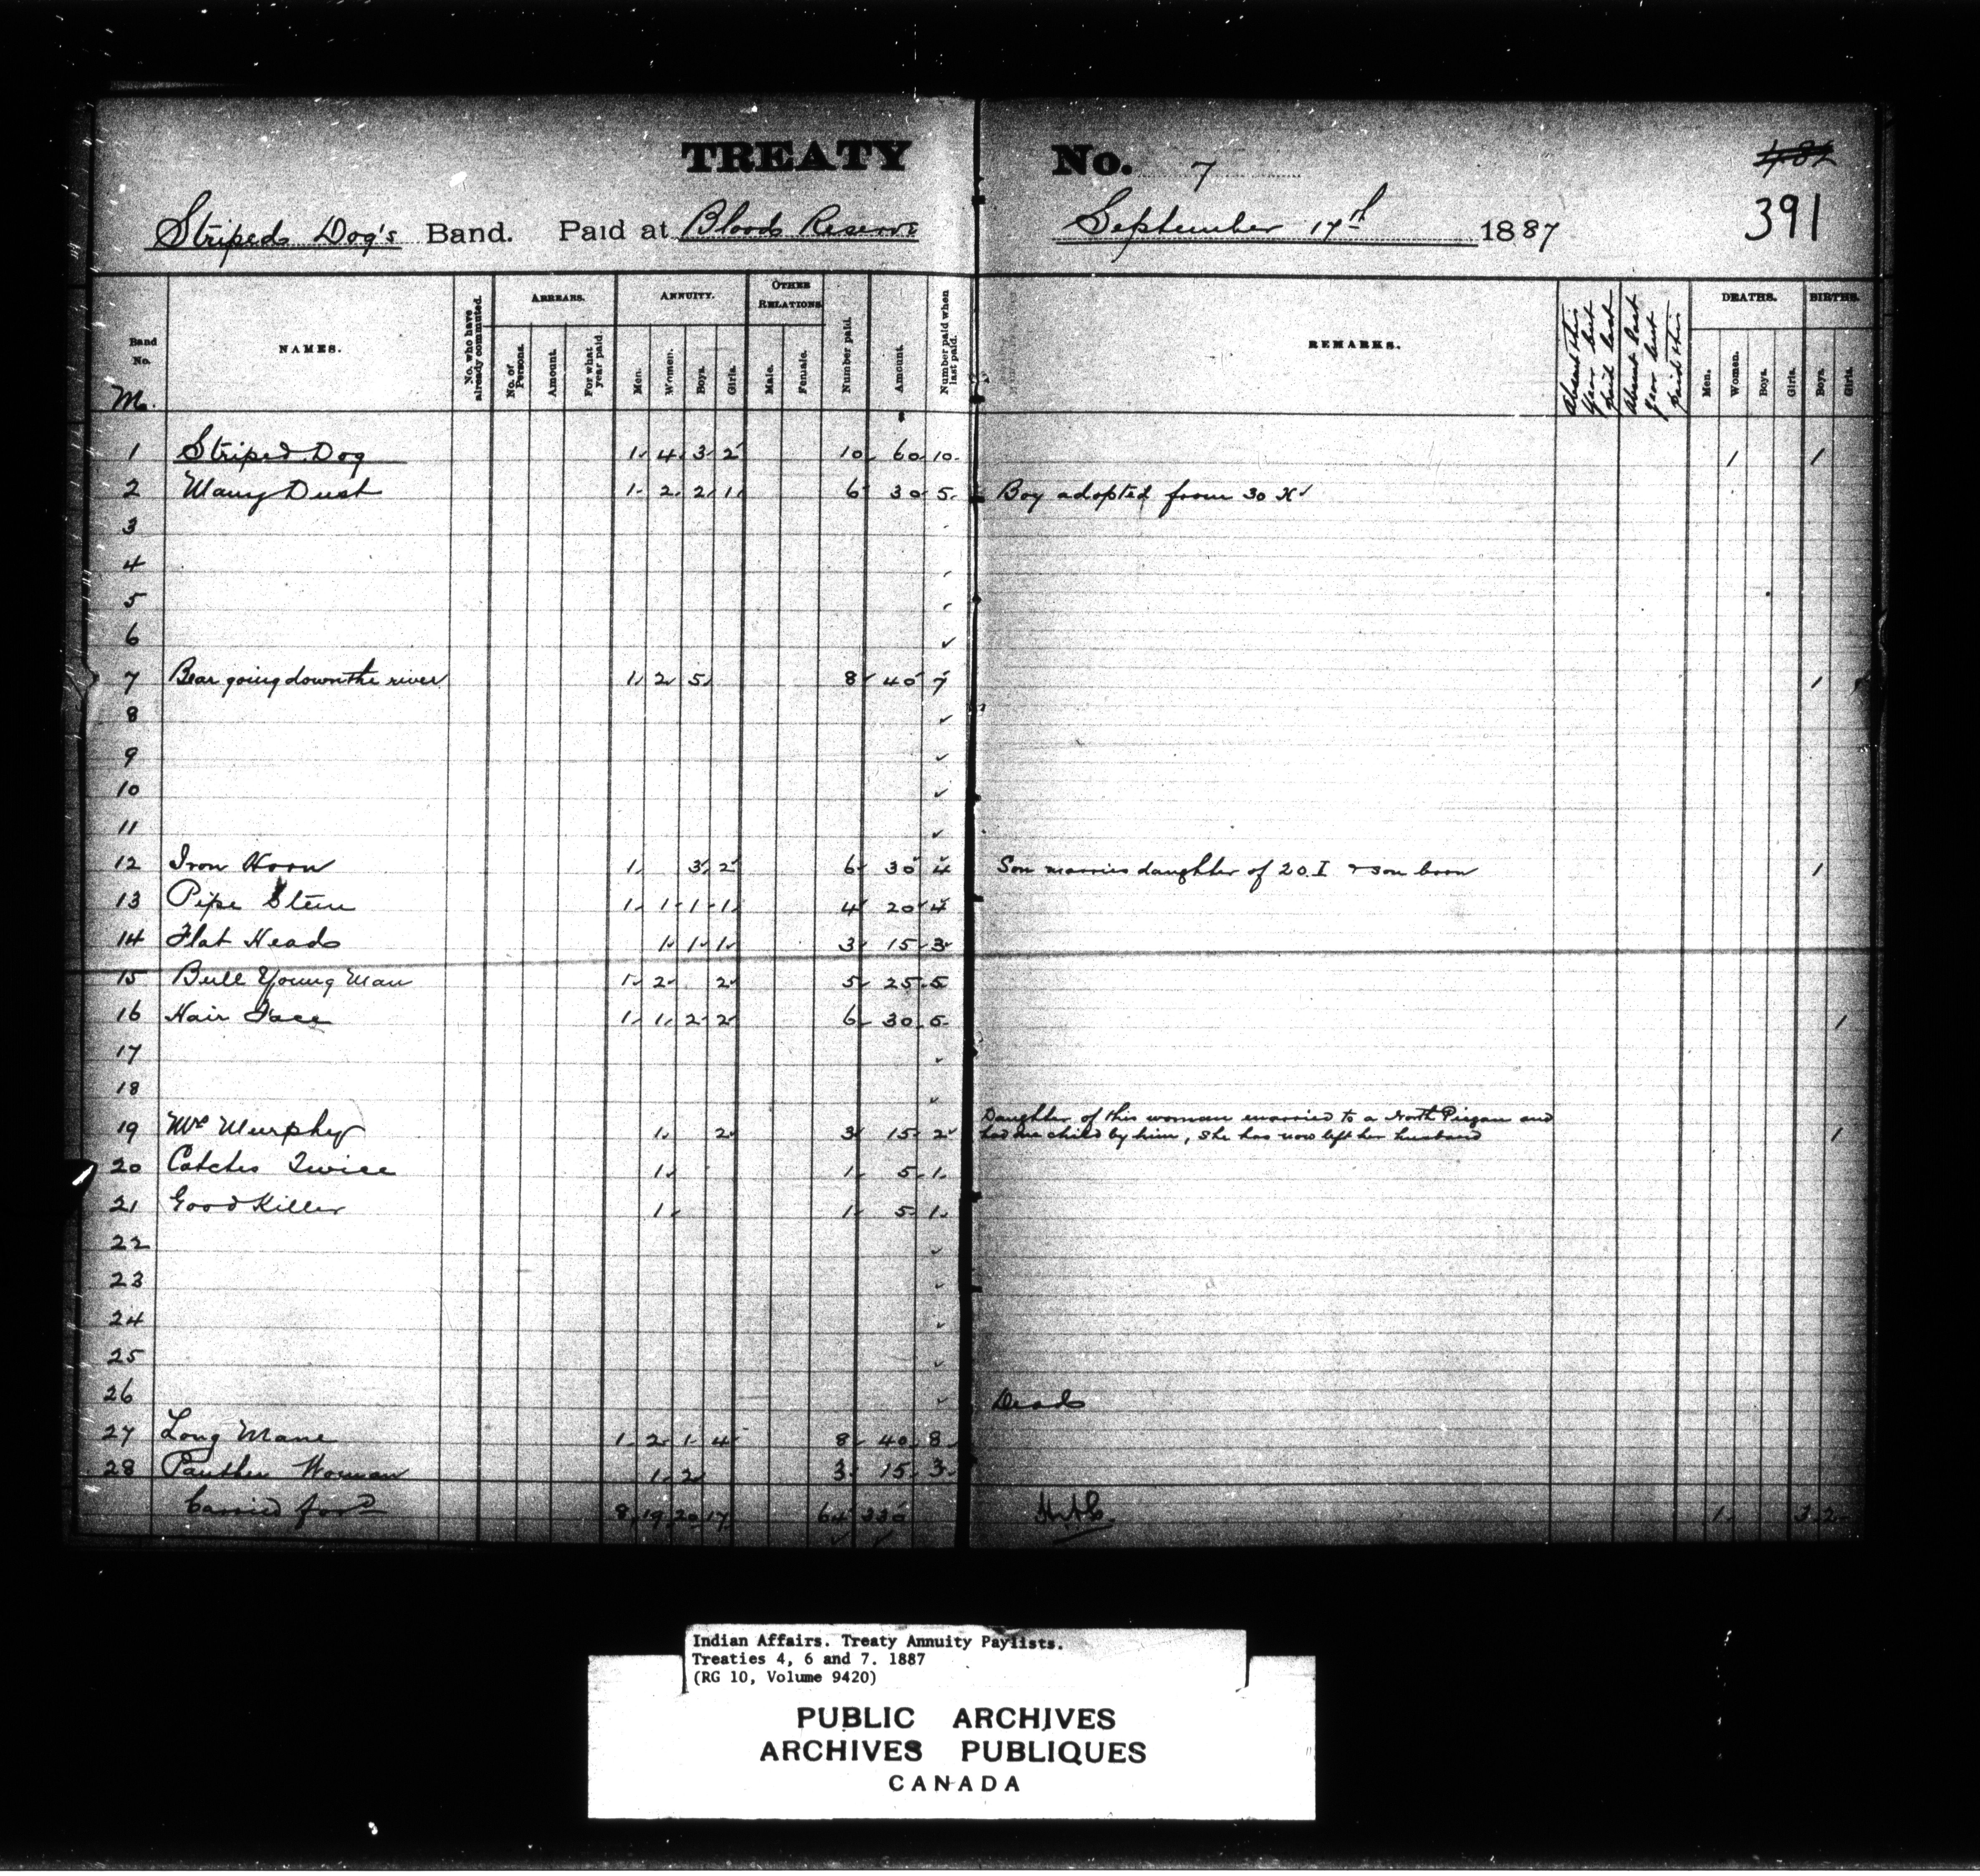 TREATY No. 7
391
Striped Dog's Band. Paid at Blood Reserve September 17th 1887
Band No. M. NAMES. No. who have already commuted. ARREARS. No. of Persons. Amount. For what year paid. ANNUITY. Men. Women. Boys. Girls. OTHER RELATIONS Male. Female. Number paid. Amount. Number paid when last paid. REMARKS. Absent this Year but paid last Absent last year but paid this DEATHS. Men. Women. Boys. Girls. BIRTHS. Boys. Girls.
$
1 Striped Dog 1 4 3 2 10 60 10 1 1
2 Many Dust 1 2 2 1 6 30 5 Boy adopted from 30 K
3
4
5
6
7 Bear going down the river 1 2 5 8 40 7 1
8
9
10
11
12 Iron Horn 1 3 2 6 30 4 Son married daughter of 20.I & son born 1
13 Pipe Stem 1 1 1 1 4 20 4
14 Flat Head 1 1 1 3 15 3
15 Bull Young Man 1 2 2 5 25 5
16 Hair Face 1 1 2 2 6 30 5 1
17
18
Daughter of this woman married to a North Piegan and
19 Mrs Murphy 1 2 3 15 2 had one child by him, she has now left her husband 1
20 Catches Twice 1 1 5 1
21 Good Killer 1 1 5 1
22
23
24
25
26 Dead
27 Long Mane 1 2 1 4 8 40 8
28 Panther Woman 1 2 3 15 3
Carried ford 8 19 20 17 64 330 1 3 2
Indian Affairs. Treaty Annuity Paylists.
Treaties 4, 6 and 7. 1887
(RG 10, Volume 9420)
PUBLIC ARCHIVES
ARCHIVES PUBLIQUES
CANADA